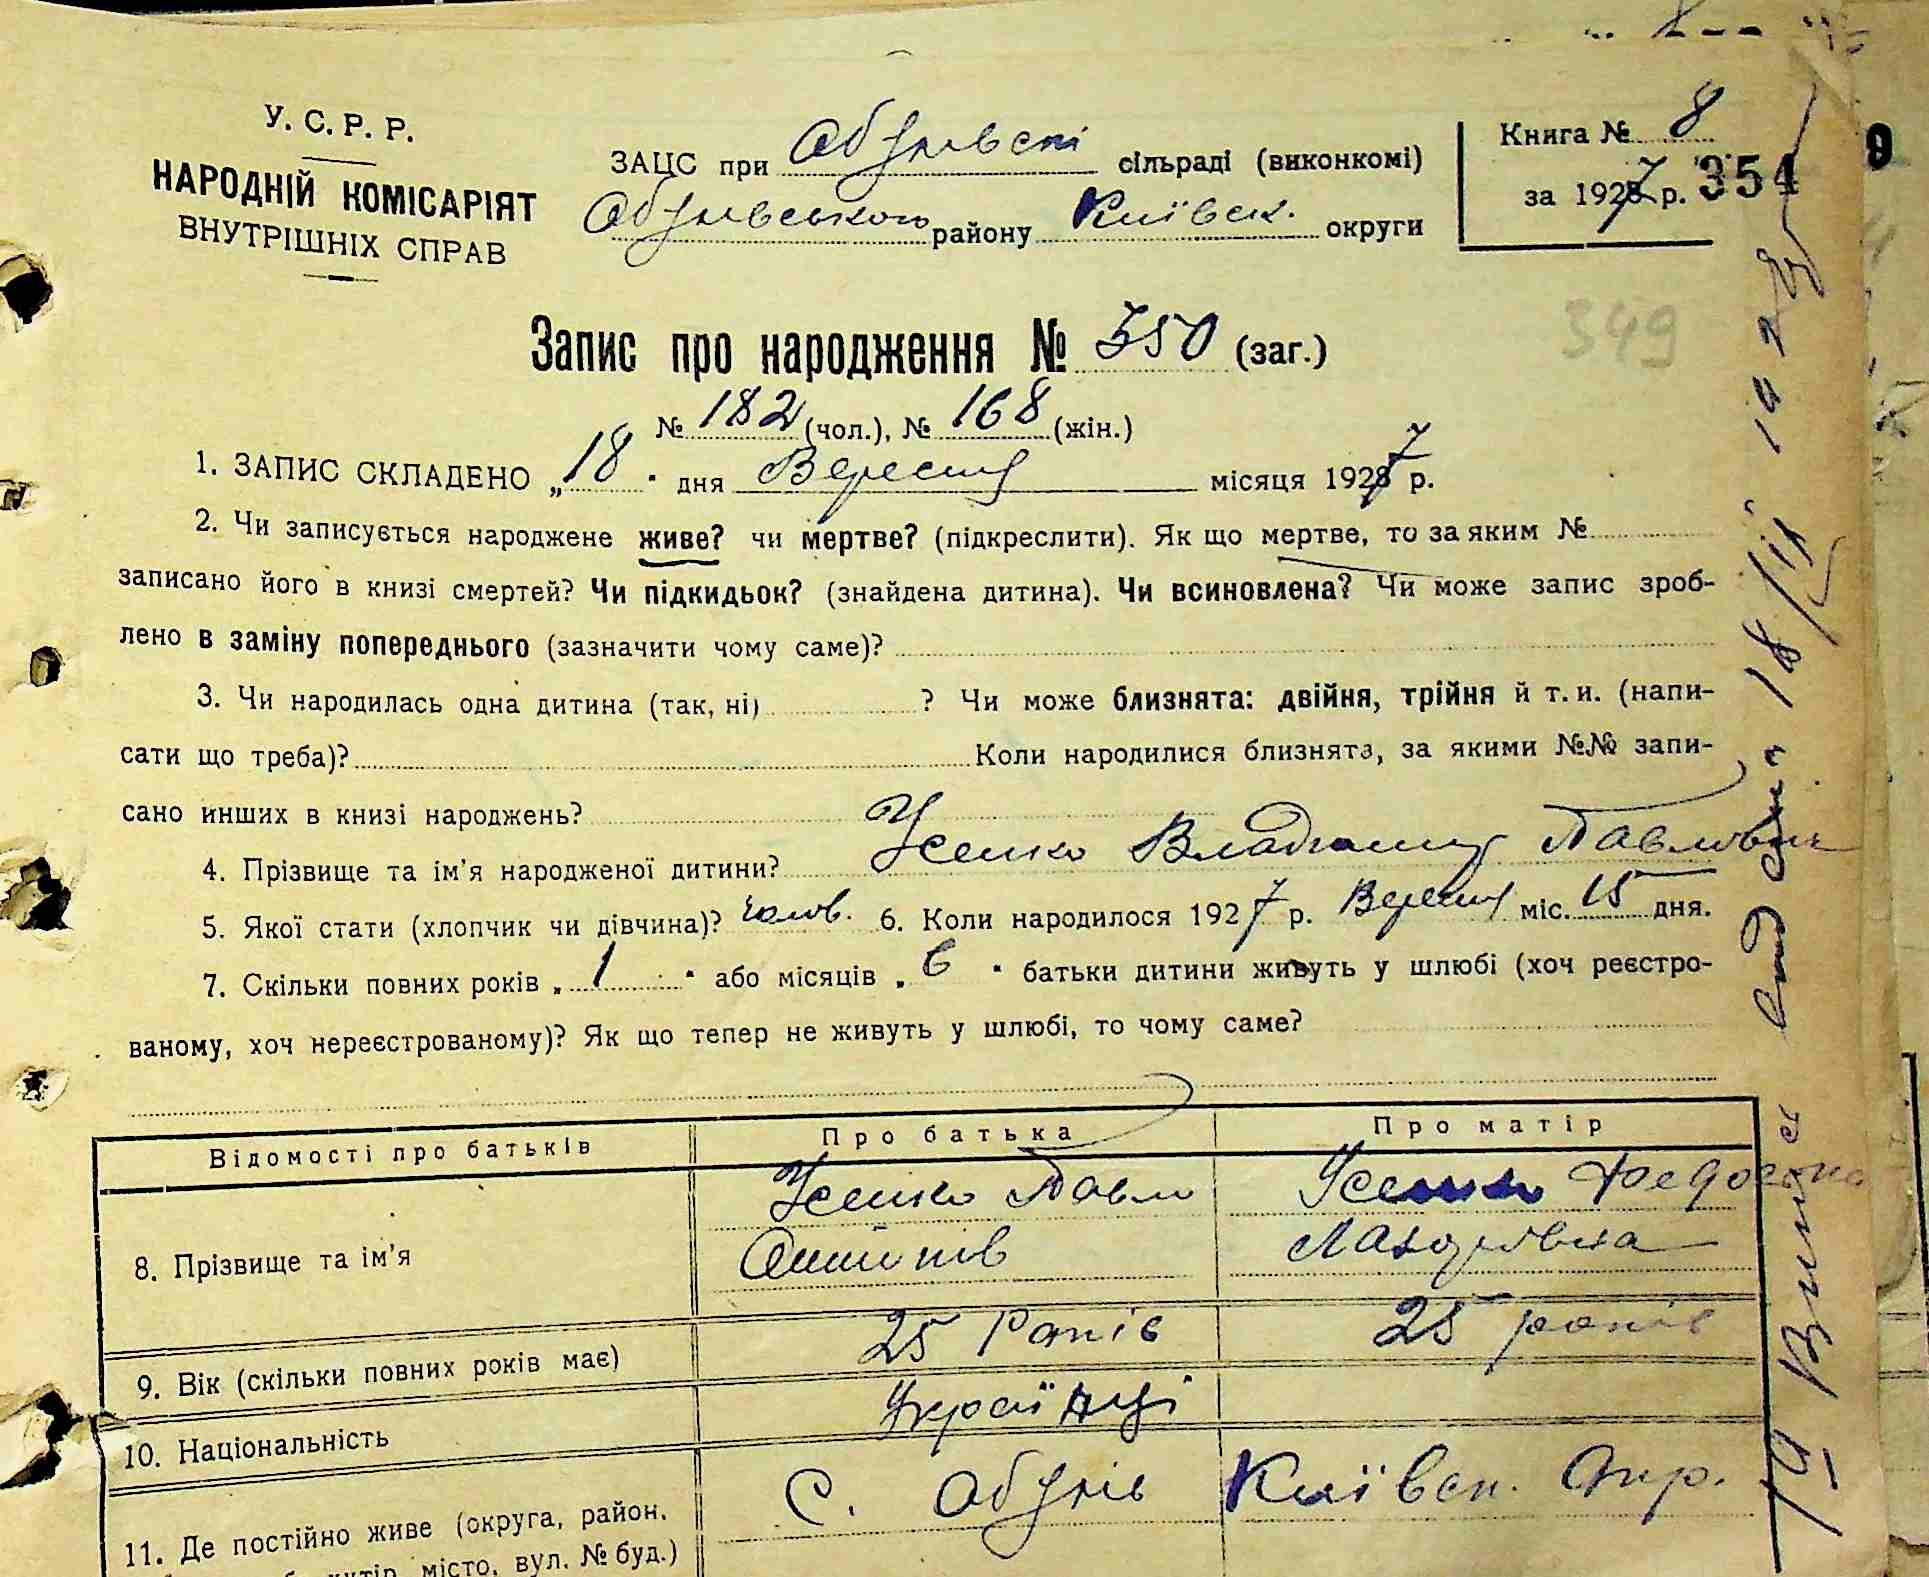 У. С. Р. Р.
НАРОДНІЙ КОМІСАРІЯТ
ВНУТРІШНІХ СПРАВ
ЗАЦС при Обухівські сільраді (виконкомі)
Обухівського району Київськ. округи
Книга № 8
за 1927 р. 354
9
349
Запис про народження № 350 (заг.)
№ 182 (чол.), № 168 (жін.)
1. ЗАПИС СКЛАДЕНО „18" дня Вересня місяця 1927 р.
2. Чи записується народжене живе? чи мертве? (підкреслити). Як що мертве, то за яким №
записано його в книзі смертей? Чи підкидьок? (знайдена дитина). Чи всиновлена? Чи може запис зроб-
лено в заміну попереднього (зазначити чому саме)?
3. Чи народилась одна дитина (так, ні) ? Чи може близнята: двійня, трійня й т. и. (напи-
сати що треба)? Коли народилися близнята, за якими №№ запи-
сано инших в книзі народжень?
4. Прізвище та ім'я народженої дитини? Усенко Владимир Павлович
5. Якої стати (хлопчик чи дівчина)? чолов. 6. Коли народилося 1927 р. Вересня міс. 15 дня.
7. Скільки повних років „1" або місяців „6" батьки дитини живуть у шлюбі (хоч реєстро-
ваному, хоч нереєстрованому)? Як що тепер не живуть у шлюбі, то чому саме?
Відомості про батьків Про батька Про матір
8. Прізвище та ім'я Усенко Павло Усенко Федосія
Лазорівна
9. Вік (скільки повних років має) 25 Років 25 років
10. Національність Українці
11. Де постійно живе (округа, район, С. Обухів Київськ. Окр.
місто, вул. № буд.)